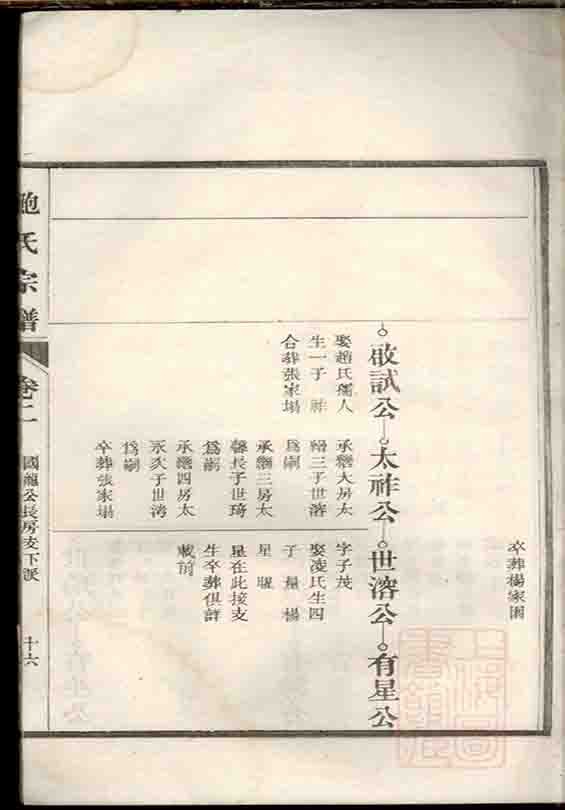 卒葬楊家園
啟試公 太祚公 世溶公 有星公
娶趙氏孺人
生一子 祚
合葬張家塲
承繼大房太
三子世溶
爲嗣
承繼三房太
馨長子世琦
爲嗣
承繼四房太
永次子世
爲嗣
卒葬張家塲
字子茂
娶凌氏生四
子 量 楊
星 曜
星在此接支
生卒葬俱詳
載前
鮑氏宗譜
卷二
國龍公長房支下派
十六